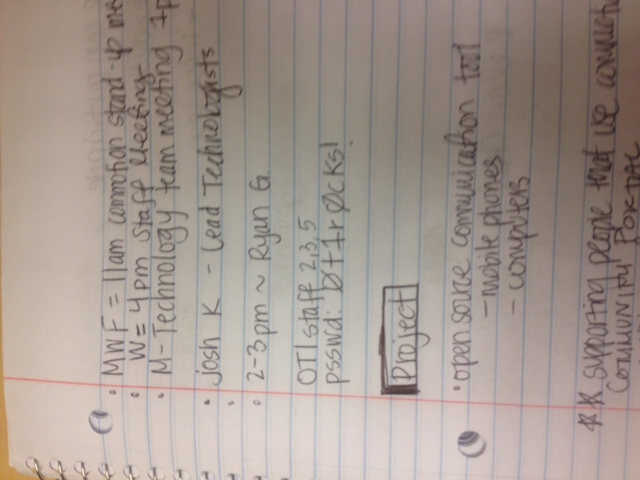 • MWF = 11am commotion stand-up me
• W = 4pm Staff Meeting
• M - Technology team meeting 1p
• josh K - Lead Technologists
•
• 2-3pm ~ Ryan G.
OTI staff 2,3,5
psswd: 0t1r0cks!
Project
• open source communication tool
- mobile phones
- computers
** supporting people that use commoti
COMMUNITY PORTAL